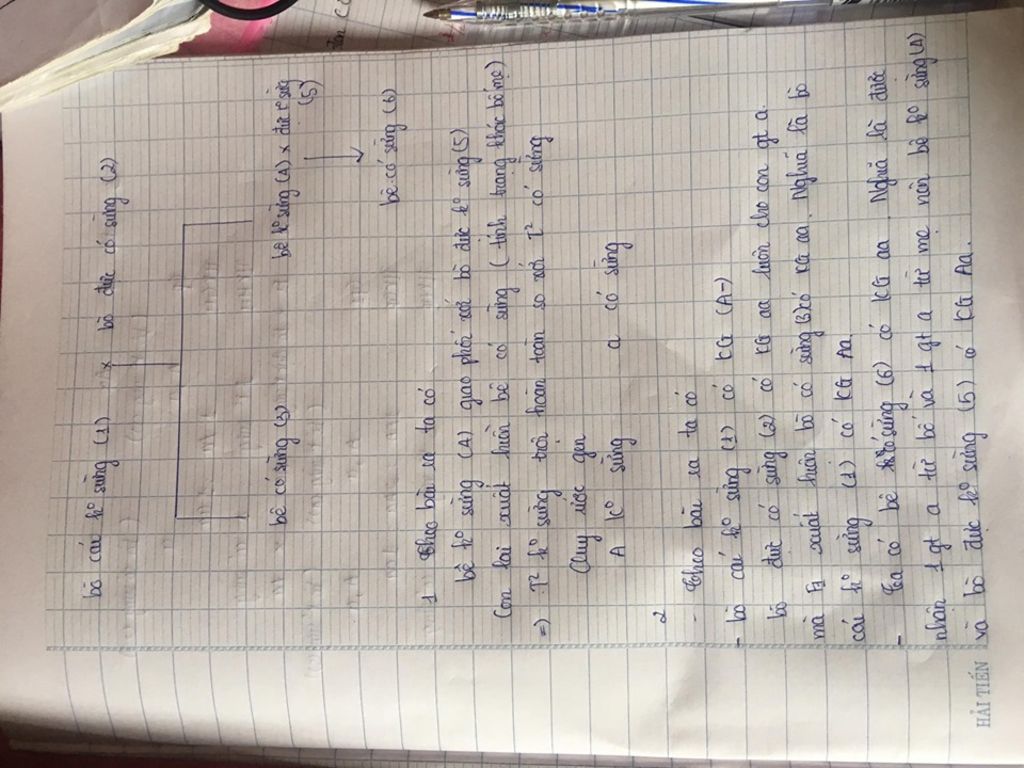 bò cái ko sừng (1) x bò đực có sừng (2)
bê có sừng (3)
bê ko sừng (4) x đực ko sừng (5)
bê có sừng (6)
1 Theo bài ra ta có
bê ko sừng (4) giao phối với bò đực ko sừng (5)
Con lai xuất hiện bê có sừng (tính trạng khác bố mẹ)
=) T² ko sừng trội hoàn toàn so với T² có sừng
Quy ước gen
A ko sừng a có sừng
2
- Theo bài ra ta có
- bò cái ko sừng (1) có KG (A-)
bò đực có sừng (2) có KG aa luôn cho con gt a.
mà F1 xuất hiện bò có sừng (3) có KG aa. Nghĩa là bò
cái ko sừng (1) có KG Aa
- Ta có bê có sừng (6) có KG aa. Nghĩa là được
nhận 1 gt a từ bố và 1 gt a từ mẹ nên bê ko sừng (4)
và bò đực ko sừng (5) có KG Aa.
HẢI TIẾN